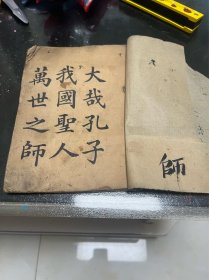 大哉孔子
我國聖人
萬世之師
師